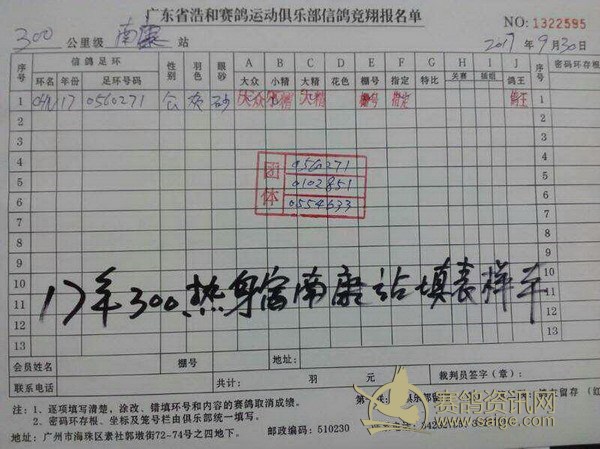 广东省浩和赛鸽运动俱乐部信鸽竞翔报名单
NO: 1322595
300 公里级 南康 站 2017年9月30日
序号 信鸽足环 性别 羽色 眼砂 A B C D E F G H I J 序号 密码环存根
环名 年份 足环号码 大众 小精 大精 花色 棚号 指定 特比 关赛 插组 鸽王
1 CHN 17 0560271 灰 砂 大众 小精 大精 棚号 指定 鸽王 1
2 2
3 3
4 团体 0560271 4
5 0102851 5
6 0554633 6
7 7
8 8
9 9
10 10
11 11
12 12
13 13
17年300热身赛南康站填表样单
会员姓名 棚号 地址:
联系电话 共计: 羽 元 裁判员签字(章):
注: 1、逐项填写清楚,涂改、错填环号和内容的赛鸽取消成绩。
2、密码环存根、坐标及笼号栏由俱乐部统一填写。
地址: 广州市海珠区素社郭墩街72-74号之四地下。 邮政编码: 510230
赛鸽资讯网
www.saige.com